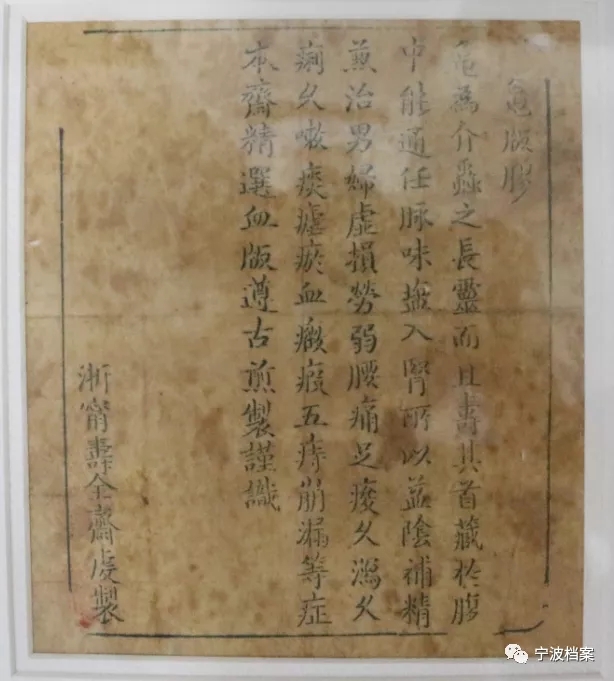 龜版膠
龜為介蟲之長靈而且壽其首藏於腹
中能通任脉味鹽入腎所以益陰補精
煎治男婦虛損勞弱腰痛足痠久瀉久
痢久嗽痰瘧瘀血癥瘕五痔崩漏等症
本齋精選血版遵古煎製謹識
浙甯壽全齋虔製
宁波档案